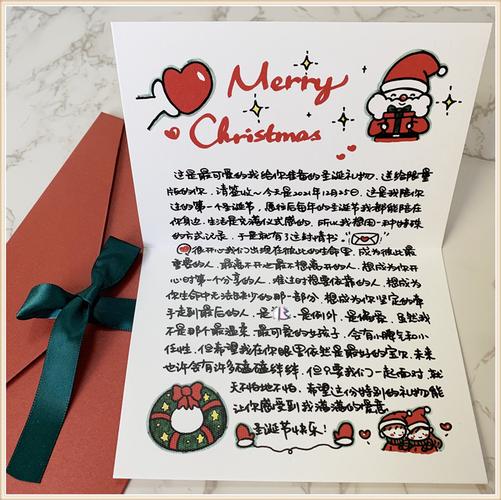 Merry
Christmas
这是最可爱的我给你准备的圣诞礼物,送给限量
版的你,请签收~今天是2021年12月25日,这是我陪你
过的第一个圣诞节,愿往后每年的圣诞节我都能陪在
你身边,生活是充满仪式感的,所以我想用一种特殊
的方式记录,于是就有了这封情书
很开心我们出现在彼此的生命里,成为彼此最
重要的人,最离不开也最不想离开的人,想成为你开
心时第一个分享的人,难过时想要依靠的人,想成为
你生命中无法割舍的那一部分,想成为你坚定的牵
手走到最后的人,是 是例外,是偏爱,虽然我
不是那个最温柔,最可爱的女孩子,会有小脾气和小
任性,但希望我在你眼里依然是最好的宝贝,未来
也许会有许多磕磕绊绊,但只要我们一起面对,就
天不怕地不怕,希望这份特别的礼物能
让你感受到我满满的爱意
圣诞节快乐!